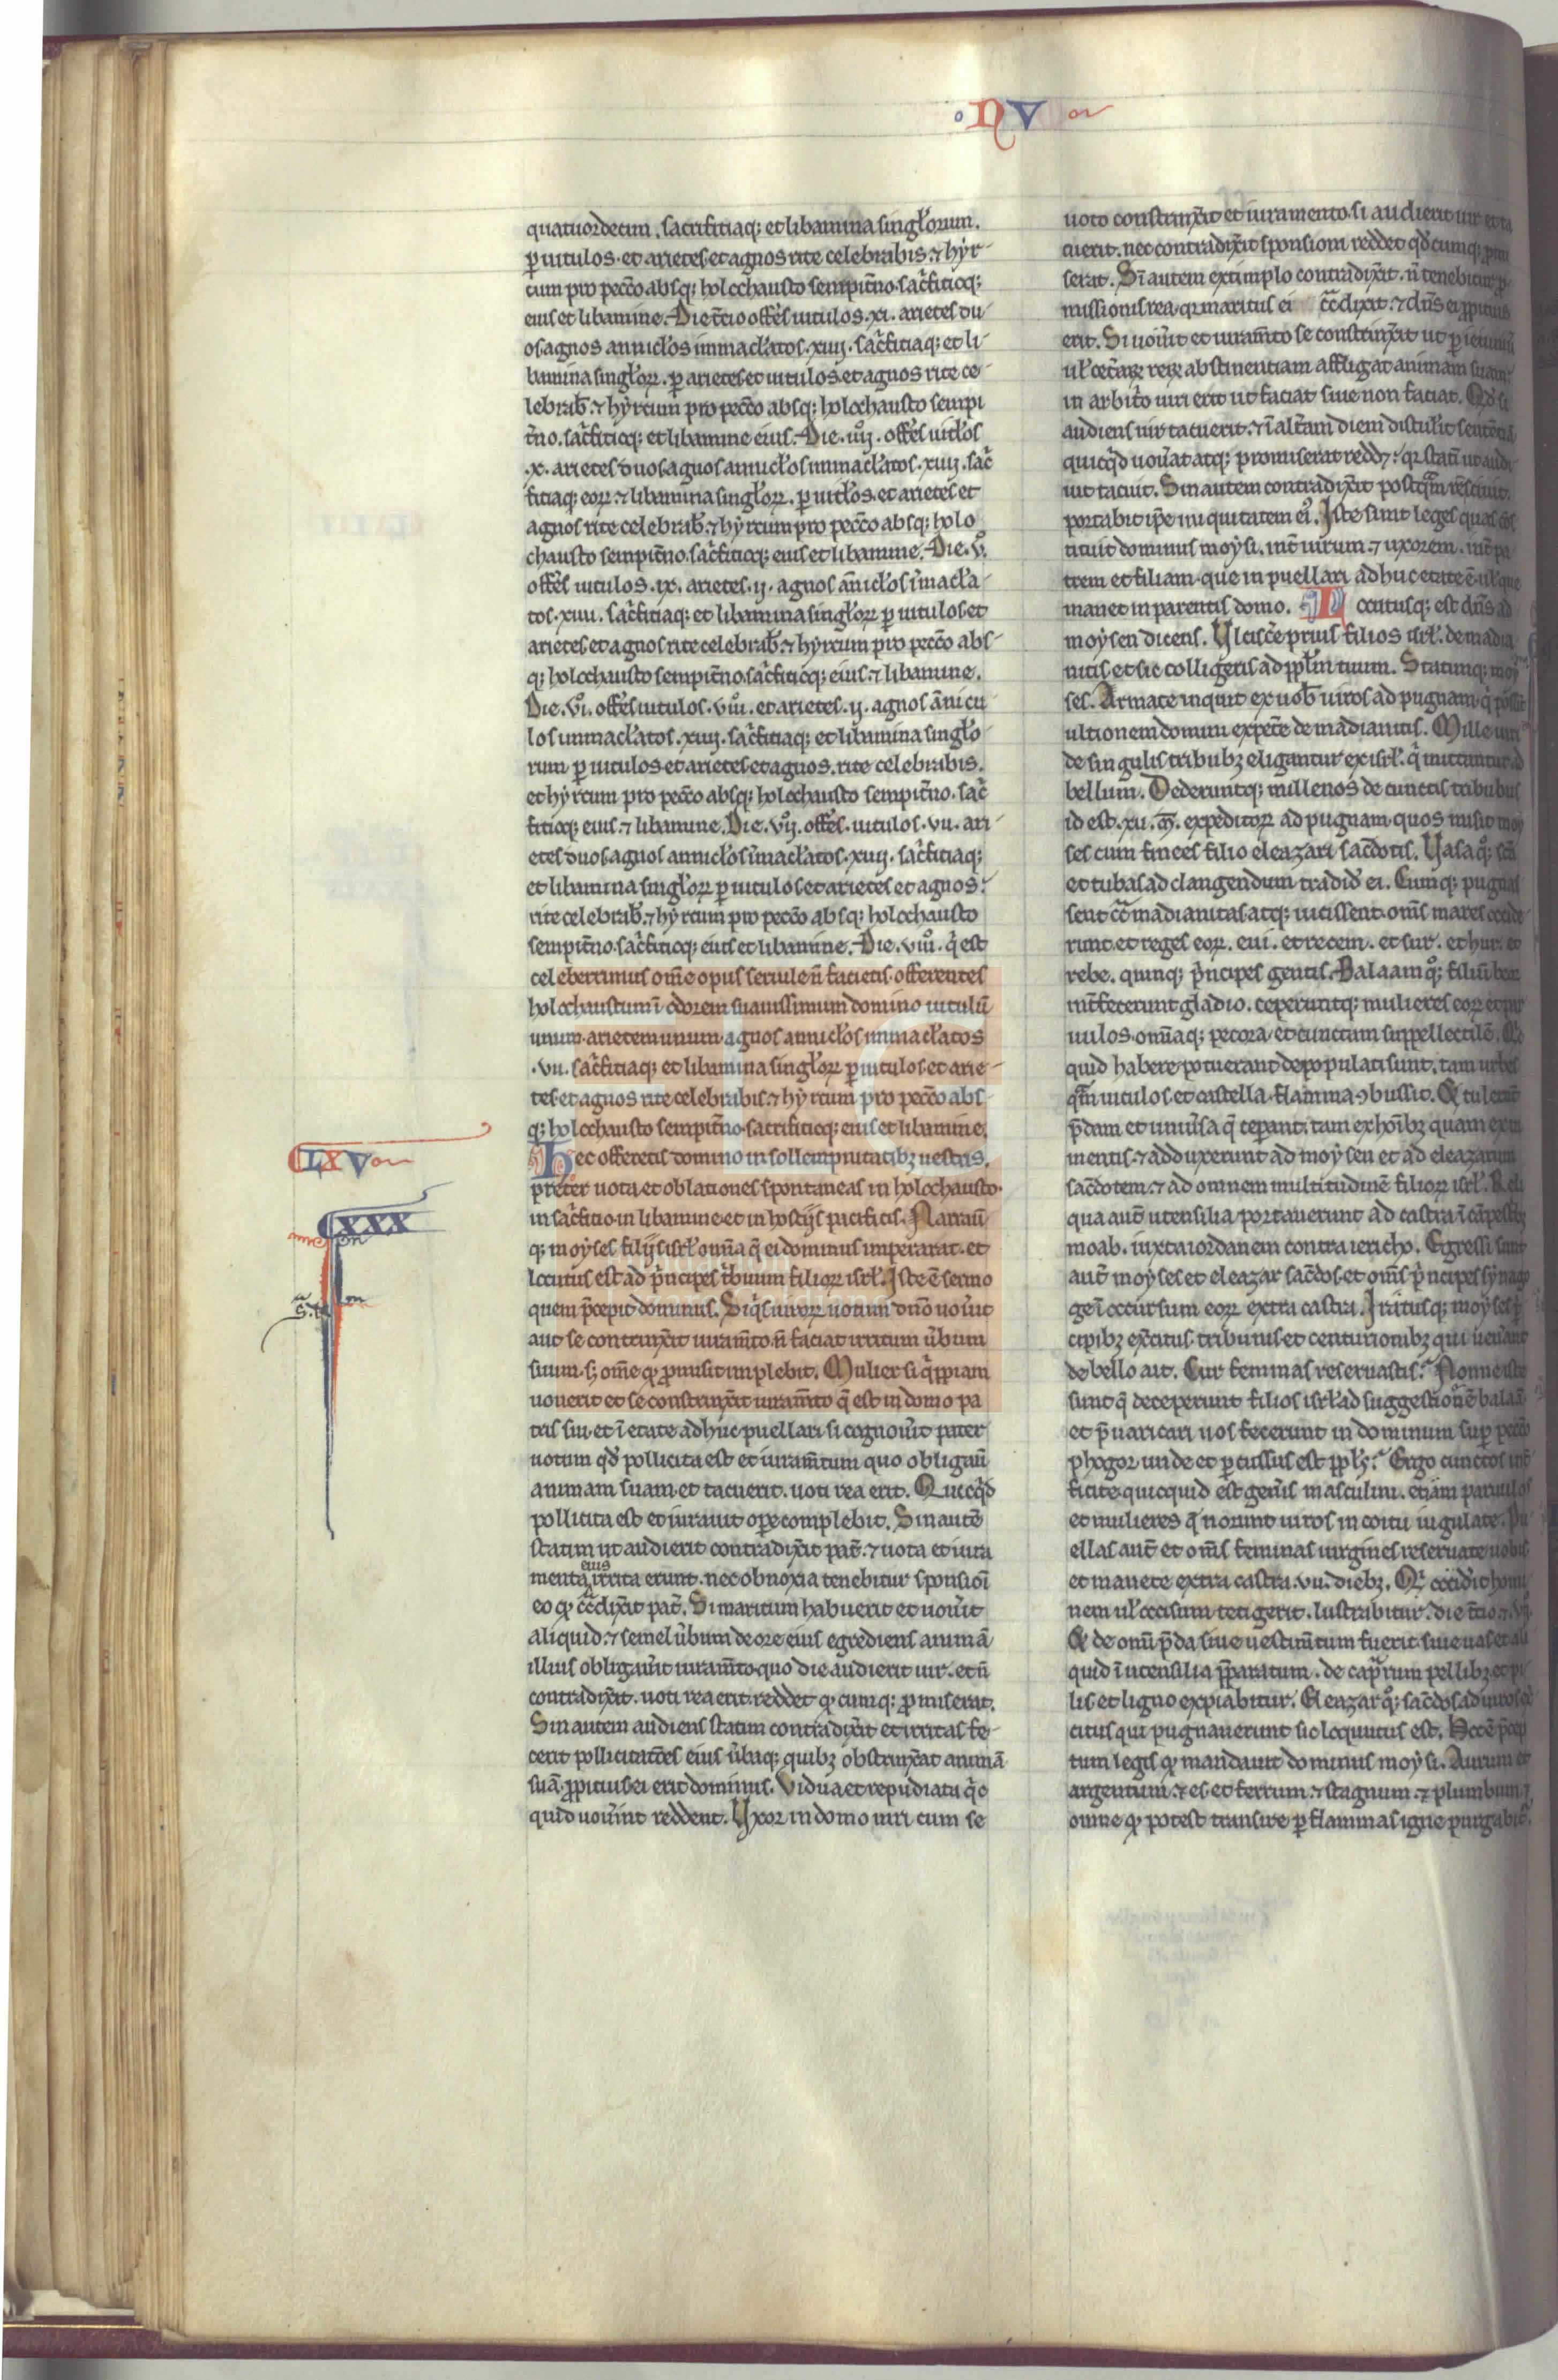 NV
quatuordecim. sacrificiaq; et libamina singło⁊um.
ꝑ uitulos. et arietes et agnos rite celebrabis. ⁊ hyr-
cum pro pecc̄o absq; holochausto sempit̄no. sac̄ficioq;
eius et libamine. Die t̄cio offeres uitulos .xi. arietes du-
os agnos annicłos immacłatos .xiiij. sac̄ficiaq; et li-
bamina singloꝝ. ꝑ arietes et uitulos et agnos rite ce-
lebrab̄. ⁊ hyrcum pro pecc̄o absq; holochausto sempi
t̄no. sac̄ficioq; et libamine eius. Die .iiij. offeres uitłos
.x. arietes duos agnos annicłos immacłatos .xiiij. sac̄
ficiaq; eoꝝ ⁊ libamina singloꝝ. ꝑ uitłos et arietes et
agnos rite celebrab̄. ⁊ hyrcum pro pecc̄o absq; holo
chausto sempit̄no. sac̄ficioq; eius et libamine. Die .v.
offeres uitulos .ix. arietes .ij. agnos annicłos īmacła-
tos .xiiii. sac̄ficiaq; et libamina singloꝝ ꝑ uitulos et
arietes et agnos rite celebrab̄. ⁊ hyrcum pro pecc̄o abs-
q; holochausto sempit̄no. sac̄ficioq; eius ⁊ libamine.
Die .vi. offeres uitulos .viii. et arietes .ij. agnos ānicu
los immacłatos .xiiij. sac̄ficiaq; et libamina singło
rum ꝑ uitulos et arietes et agnos. rite celebrabis.
et hyrcum pro pecc̄o absq; holochausto sempit̄no. sac̄
ficioq; eius ⁊ libamine. Die .vij. offeres. uitulos .vii. ari
etes duos agnos annicłos īmacłatos .xiiij. sac̄ficiaq;
et libamina singloꝝ ꝑ uitulos et arietes et agnos.
rite celebrab̄. ⁊ hyrcum pro pecc̄o absq; holochausto
sempit̄no. sac̄ficioq; eius et libamine. Die .viii. q̄ est
celeberrimus om̄e opus seruile n̄ facietis. offerentes
holochaustum ī odorem suauissimum domino uitulū
unum. arietem unum. agnos annicłos immacłatos
.vii. sac̄ficiaq; et libamina singloꝝ ꝑ uitulos et arie-
tes et agnos rite celebrabis. ⁊ hyrcum pro pecc̄o abs-
q; holochausto sempit̄no. sacrificioq; eius et libamine.
LXV
Hec offeretis domino in sollempnitatibꝫ uestris.
preter uota et oblationes spontaneas in holochausto.
in sac̄ficio in libamine et in hostijs pacificis. Narrauit
XXX
q; moyses filijs isrł omīa q̄ ei dominus imperarat. et
locutus est ad p̄ncipes t̄buum filioꝝ isrł. Iste ē sermo
quem p̄cepit dominus. Siq̄s uiroꝝ uotum dn̄o uou̇it
aut se constrinx̄it iuram̄to. n̄ faciat irritum u̇bum
suum. sꝫ om̄e q̇ promisit implebit. Mulier si q̄ppiam
uouerit et se constrinx̄it iuram̄to q̄ est in domo pa
tris sui. et ī etate adhuc puellari si cognou̇it pater
uotum qd̄ pollicita est et iuram̄tum quo obligauit
animam suam. et tacuerit. uoti rea erit. Quicq̄d
pollicita est et iurauit oꝑe complebit. Sin autē
statim ut audierit contradix̄it pat̄. ⁊ uota et iura
menta eius irrita erunt. nec obnoxia tenebitur sponsiōi
eo q̇ c̄cdix̄it pat̄. Si maritum habuerit et uou̇it
aliquid. ⁊ semel u̇bum de ore eius egrediens animā
illius obligau̇it iuram̄to. quo die audierit uir. et n̄
contradix̄it. uoti rea erit. reddet q̇cumq; ꝓmiserat.
Sin autem audiens statim contradix̄it et irritas fe-
cerit pollicitatōes eius u̇baq; quibꝫ obstrinx̄at animā
suā. ꝓpitius ei erit dominus. Vidua et repudiata q̄c
quid uou̇int reddent. Uxor in domo uiri cum se
uoto constrinx̄it et iuramento. si audierit uir et ta
cuerit. nec contradix̄it sponsioni reddet qd̄cumq; promi
serat. Sī autem extimplo contradix̄it. n̄ tenebitur ꝓ
missionis rea. q̄ maritus ei c̄cdixit. ⁊ dn̄s ei ꝓpitius
erit. Si uou̇it et iuram̄to se constrinx̄it ut ꝑ ieiuniū
uł cet̄aꝝ reꝝ abstinentiam affligat animam suam.
in arbit̄o uiri erit ut faciat siue non faciat. Qd̄ si
audiens uir tacuerit. ⁊ ī alt̄am diem distulit sententiā
quicq̄d uou̇at atq; promiserat reddet. q̄ statī ut audi
uit tacuit. Sin autem contradix̄it postq̄m resciuit.
portabit ip̄e iniquitatem ei⁹. Iste sunt leges quas cōs
tituit dominus moysi. int̄ uirum ⁊ uxorem. int̄ pa
trem et filiam. que in puellari adhuc etate ē. uł que
manet in parentis domo. Locutusq; est dn̄s ad
moysen dicens. Ulciscē prius filios isrł. de madia
nitis et sic colligeris ad pplm̄ tuum. Statimq; moy
ses. Armate inquit ex uob̄ uiros ad pugnam. q̄ possīt
ultionem domini expet̄e de madianitis. Mille uiri
de singulis tribubꝫ eligantur ex isrł. q̄ mittantur ad
bellum. Dederuntq; millenos de cunctis tribubus
id est .xii. m̄. expeditoꝝ ad pugnam. quos misit moy
ses cum finees filio eleazari sac̄dotis. Uasa q̇; scā
et tubas ad clangendum tradid̄ ei. Cumq; pugnas
sent c̄c madianitas atq; uicissent. om̄s mares occide
runt. et reges eoꝝ. eui. et recem. et sur. et hur. et
rebe. quinq; p̄ncipes gentis. Balaam q̇; filiū beor
int̄fecerunt gladio. ceperuntq; mulieres eoꝝ et par
uulos. om̄iaq; pecora. et cunctam suppellectilē. Q̇c
quid habere potuerant depopulati sunt. tam urbes
q̄m uiculos et castella. flamma ꝯbussit. Et tulerunt
p̄dam et uniu̇sa q̄ ceperant. tam ex hoīibꝫ quam ex iu
mentis. ⁊ adduxerunt ad moysen et ad eleazarum
sac̄dotem. ⁊ ad omnem multitudinē filioꝝ isrł. Reli
qua aut̄ utensilia portauerunt ad castra ī cāpestribꝫ
moab. iuxta iordanem contra iericho. Egressi sunt
aut̄ moyses et eleazar sac̄dos. et om̄s p̄ncipes synago
ge ī occursum eoꝝ extra castra. Iratusq; moyses p̄
cipibꝫ ex̄citus. tribunis et centurionibꝫ qui uen̄ant
de bello ait. Cur feminas reseruastis? Nonne iste
sunt q̄ deceperunt filios isrł ad suggestionē balaā
et p̄uaricari uos fecerunt in dominum suꝑ pecc̄o
phogor unde et ꝑcussus est ppłs? Ergo cunctos int̄
ficite. quicquid est gen̄is masculini. etiam paruulos
et mulieres q̄ norunt uiros in coitu iugulate. Pu
ellas aut̄ et om̄s feminas uirgines reseruate uobis
et manete extra castra .vii. diebꝫ. Q̇ occid̄it homi
nem uł occisum tetigerit. lustrabitur. die t̄cio. ⁊ .vij.
Et de omni p̄da siue uestim̄tum fuerit siue uas et ali
quid ī utensilia p̄paratum. de cap̄rum pellibꝫ et pi
lis et ligno expiabitur. Eleazar q̇; sac̄dos ad uiros ex̄
citus qui pugnauerunt sic loquutus est. Hoc ē p̄cep
tum legis q̇ mandauit dominus moysi. Aurum et
argentum. ⁊ es et ferrum. ⁊ stagnum. ⁊ plumbum. ⁊
omne q̇ potest transire ꝑ flammas igne purgabit̄.